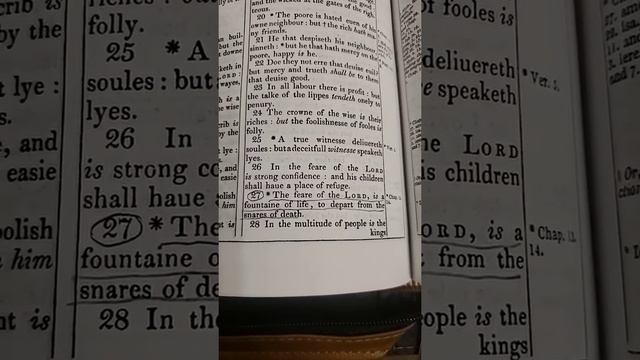 crib is
by the
t lye :
s.
, and
easie
polish
him
nt is
folly.
25 * A
soules : but
lyes.
26 In
is strong co
shall haue
(27) * The
fountaine o
snares of de
28 In the
and the wicked at the gates of the
teous.
20 * The poore is hated euen of
owne neighbour : but † the rich hath
ny friends.
21 He that despiseth his neighbour
sinneth : * but he that hath mercy on the
poore, happy is he.
22 Doe they not erre that deuise euill
but mercy and trueth shall be to them
that deuise good.
23 In all labour there is profit : but
the talke of the lippes tendeth onely to
penury.
24 The crowne of the wise is their
riches : but the foolishnesse of fooles is
folly.
25 * A true witnesse deliuereth
soules : but a deceitfull witnesse speaketh
lyes.
26 In the feare of the LORD
is strong confidence : and his children
shall haue a place of refuge.
(27) * The feare of the LORD, is a
fountaine of life, to depart from the
snares of death.
28 In the multitude of people is the
kings
of fooles is
deliuereth
e speaketh
e LORD
is children
ORD, is a
from the
eople is the
kings
* Ver. 5.
* Chap. 13.
14.